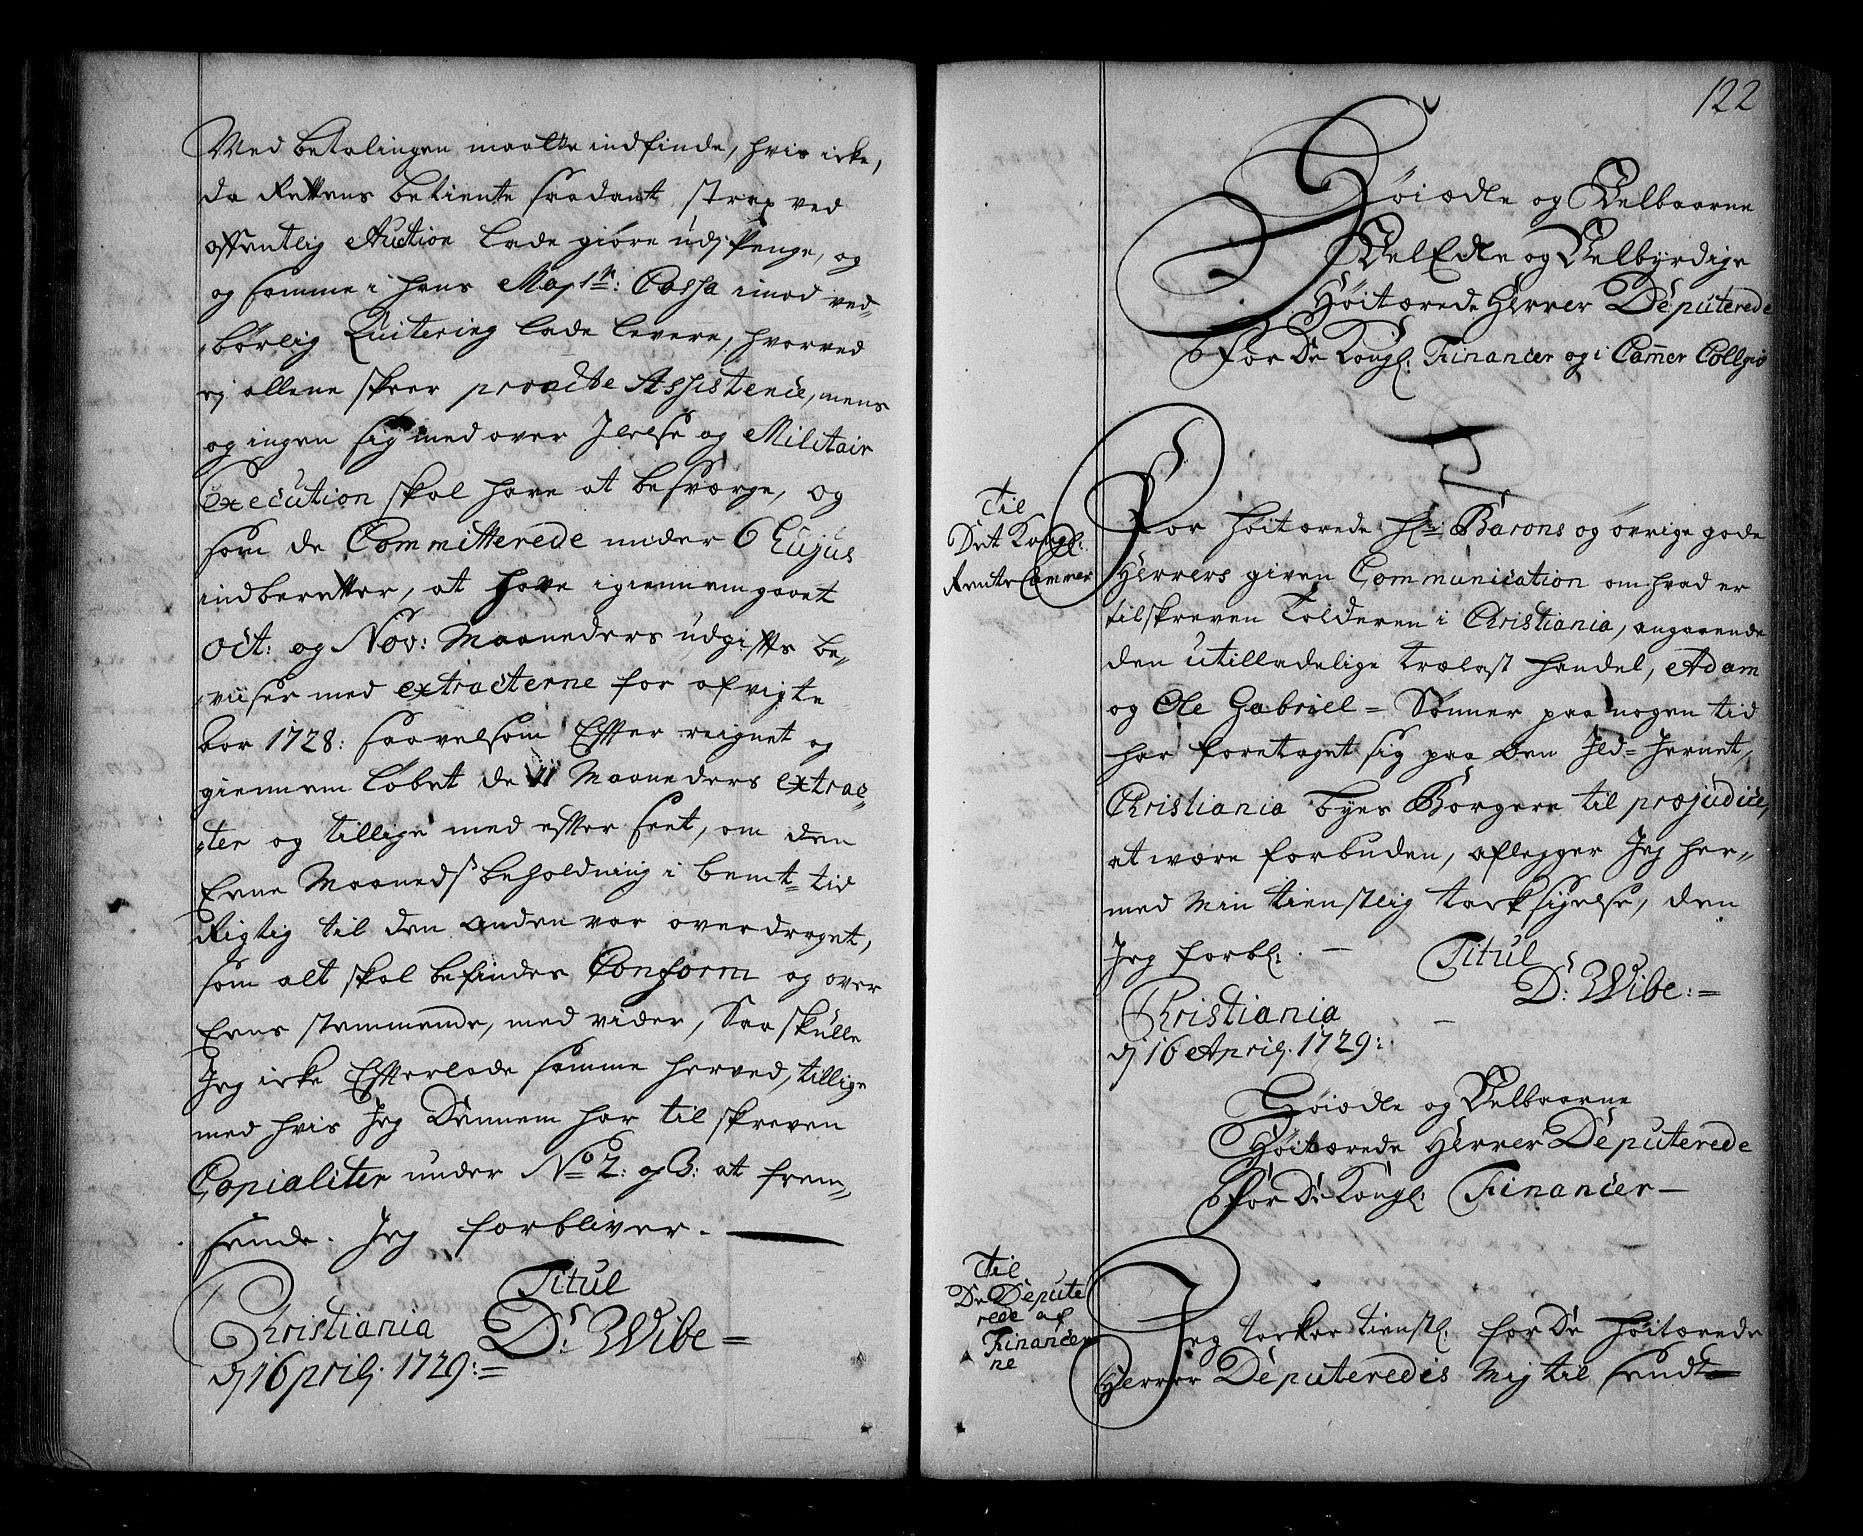 Med betalingen maatte indfinde, hvis icke,
da Rettens betiente saadant strax ved
offentlig Auction lade giöre udj Penge, og
og samme i hans Maj:ts Cassa imod ved-
börlig Quitering lade levere, hvorved
ej allene skeer prompte Assistence, mens
og ingen sig med over Ilelse og Militair
Execution skal have at besværge, og
som de Committerede under 6 Hujus
indberetter, at have igiennemgaaet
Oct: og Nov: Maaneders udgifts be-
viiser med extracterne for afvigte
Aar 1728: saavelsom Efter reignet og
giennem Löbet de 11 Maaneders extrac-
ter og tillige med efter seet, om den
Eene Maaneds beholdning i bemt: tid
Rigtig til den anden var overdraget,
som alt skal befindes Conform og over
Eens stemmende, med vider, Saa skulle
Jeg icke Efterlade samme herved, tillige
med hvis Jeg Dennem har til skreven
Copialiter under No 2: og 3: at frem-
sende. Jeg forbliver.
Titul
D: Wibe
Christiania
dj 16 pril: 1729:
122
Höiædle og Velbaarne
VelEdle og Velbyrdige
Höitærede Herrer Deputerede
for De Kongl: Financer og i Camer Collegio
Til
Det Kongl:
RenteCammer
For Höitærede Hr: Barons og övrige gode
Herrers given Communication om hvad er
tilskreven Tolderen i Christiania, angaaende
den utilladelige trælast handel, Adam
og Ole Gabriel = Sönner paa nogen tid
har foretaget sig paa Den Ild = Jernet,
Christiania Byes Borgere til præjudice,
at være forbuden, aflegger Jeg her-
med Min tienstlig tacksigelse, den
Jeg forbl:
Titul
D: Wibe:
Christiania
dj 16 April: 1729:
Höiædle og Velbaarne
Höitærede Herrer Deputerede
For De Kongl: Financer
Til
De Depute
rede af
Financer
ne
Jeg tacker tienstl: for De Höitærede
Herrer Deputeredes Mig til sendt